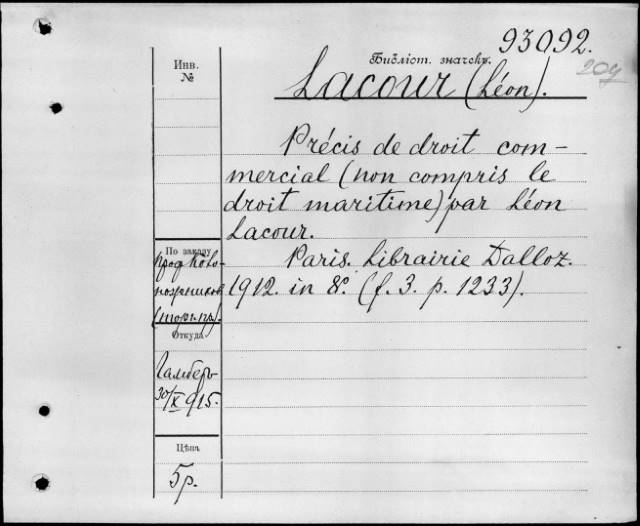 93092.
Библіот. значекъ.
209
Lacour (Léon).
Инв.
№
Précis de droit com-
mercial (non compris le
droit maritime) par Léon
Lacour.
Paris. Librairie Dalloz.
1912. in 8º. (f. 3. p. 1233).
По заказу
проф.
(торг. пр.).
Откуда
30/X 915.
Цѣна
5 р.